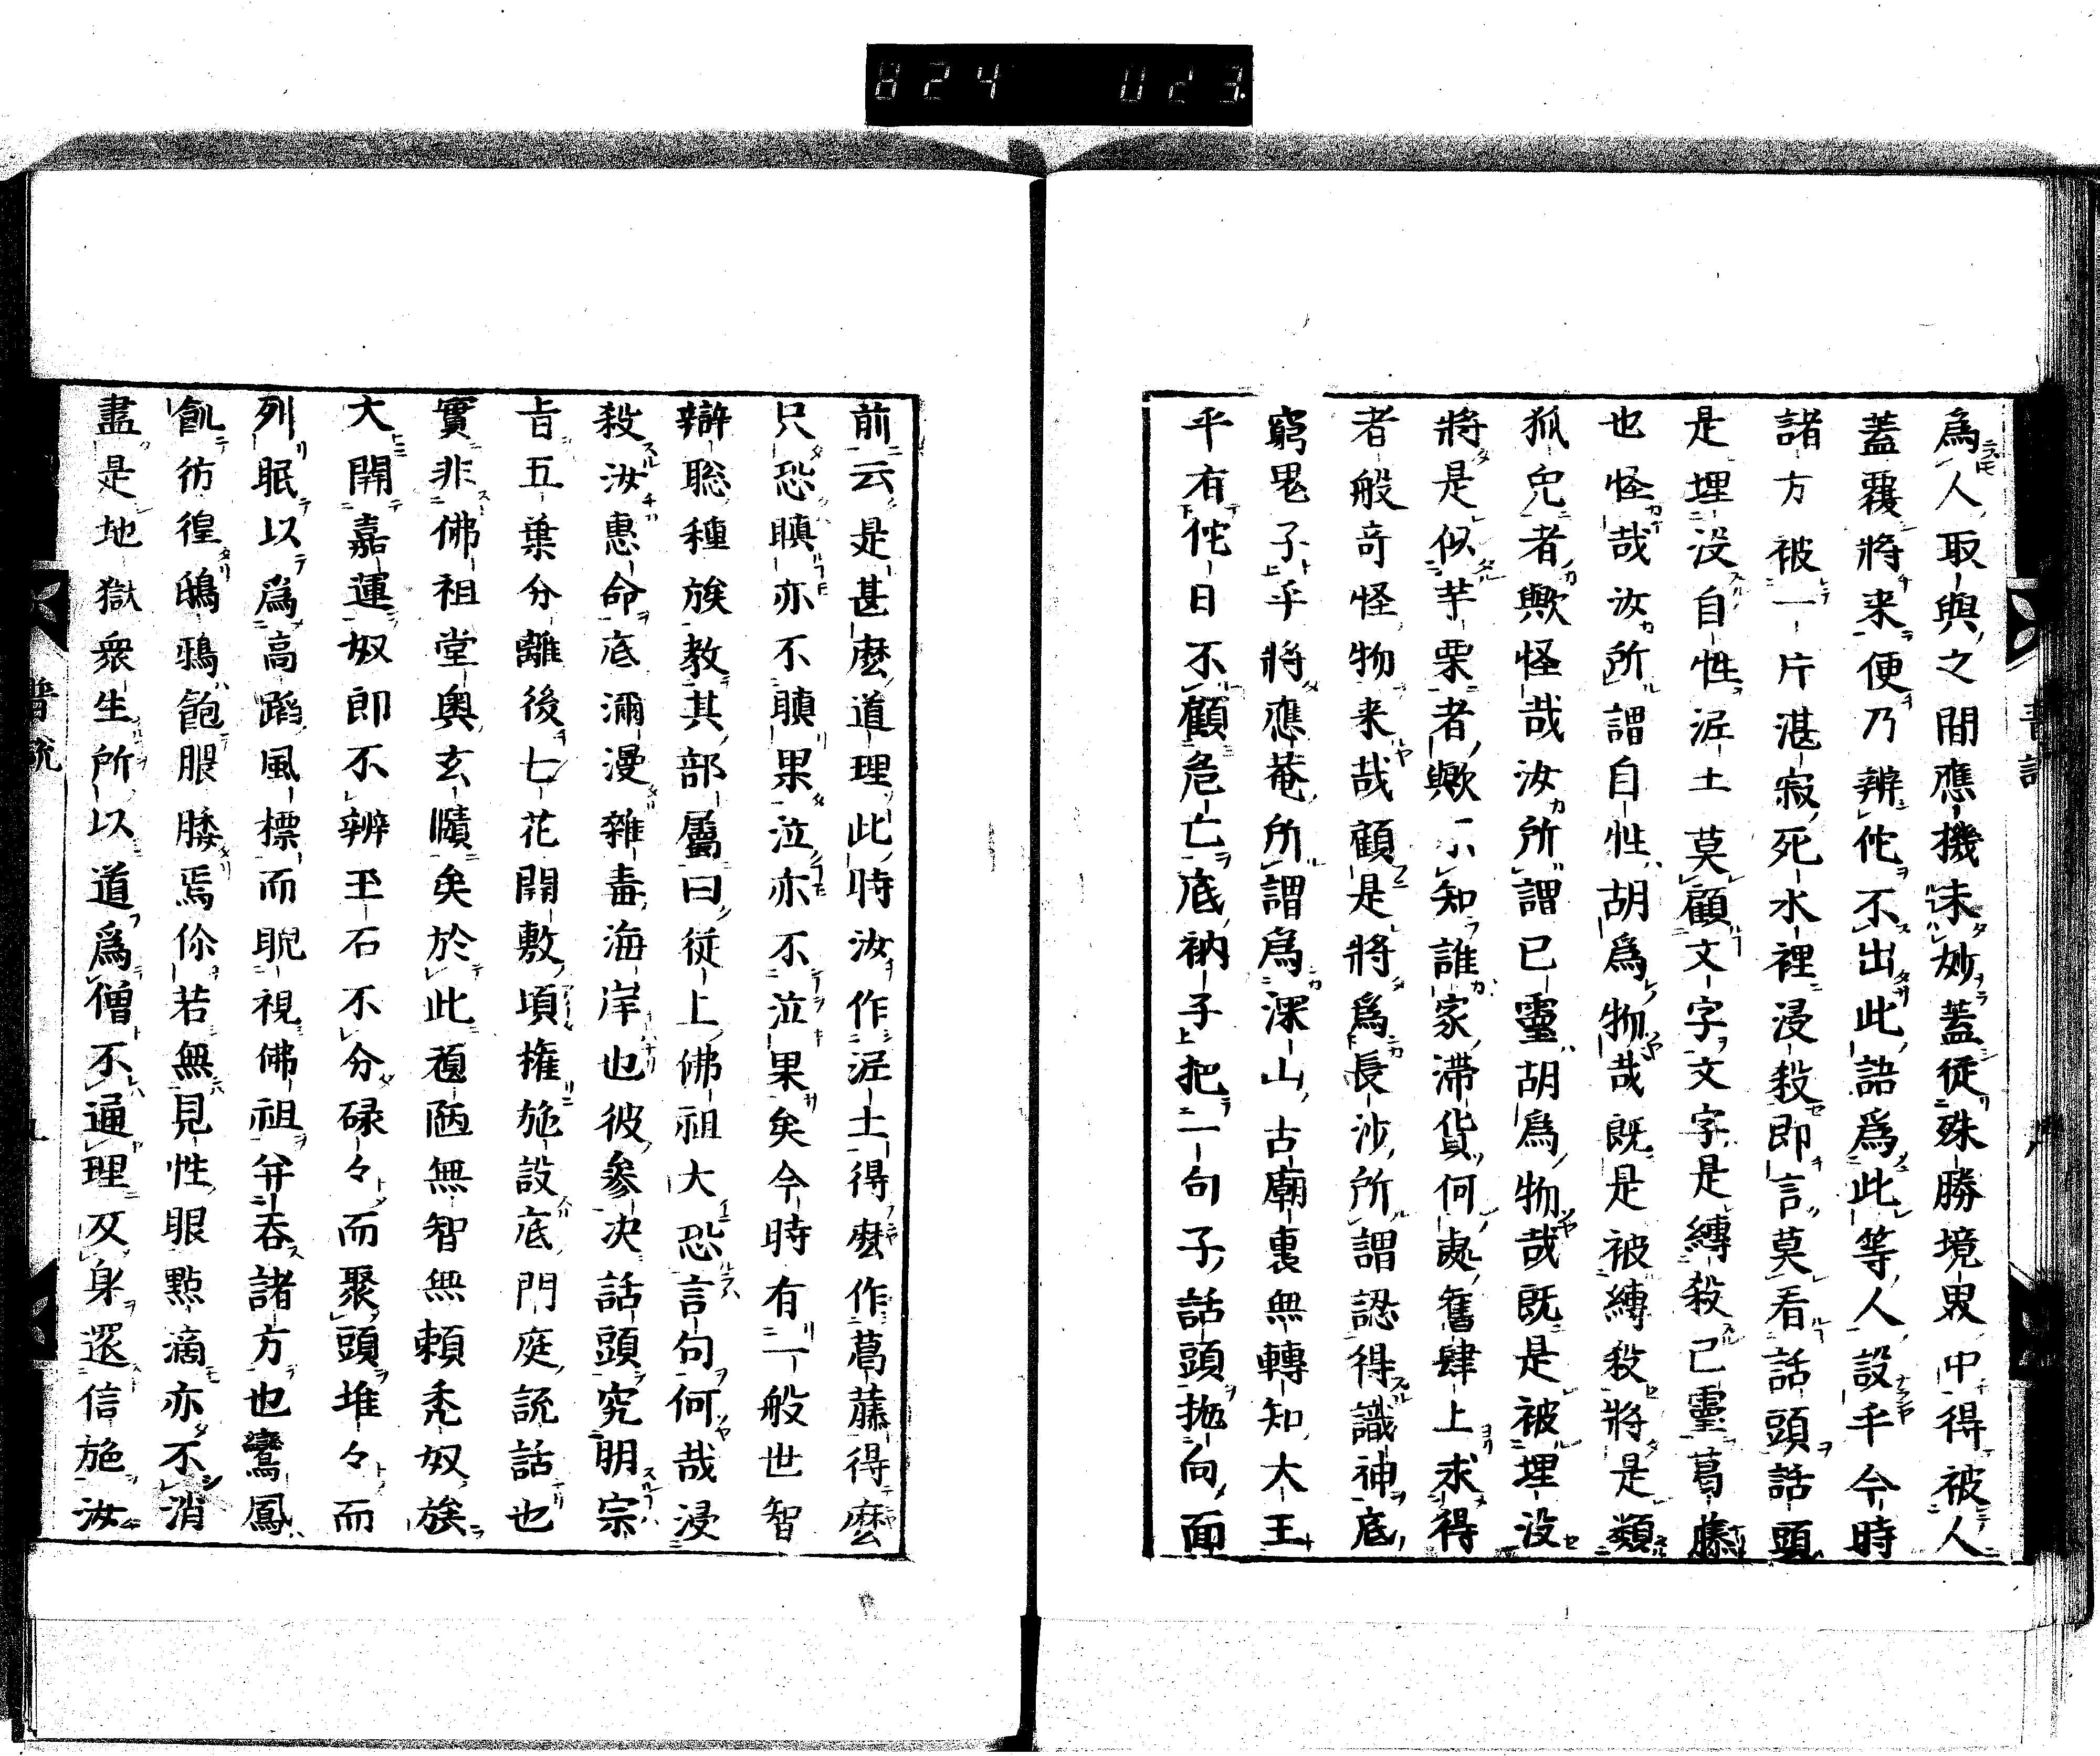 824 023
爲人取與之間應機未妙蓋從殊勝境界中得被人
蓋覆將来便乃辨佗不出此語爲此等人設乎今時
諸方被一片湛寂死水裡浸殺即言莫看話頭話頭
是埋没自性泥土莫顧文字文字是縛殺己靈葛藤
也怪哉汝所謂自性胡爲物哉既是被縛殺將是類
狐兔者歟怪哉汝所謂己靈胡爲物哉既是被埋没
將是似芋栗者歟不知誰家滞貨何處舊肆上求得
者般奇怪物来哉顧是將爲長沙所謂認得識神底
窮鬼子乎將應菴所謂爲深山古廟裏無轉知大王
乎有佗日不顧危亡底衲子把一句子話頭抛向面
前云是甚麽道理此時汝作泥土得麽作葛藤得麽
只恐瞋亦不瞋果泣亦不泣果矣今時有一般世智
辯聡種族教其部屬曰從上佛祖大恐言句何哉浸
殺汝惠命底瀰漫雜毒海岸也彼參决話頭究明宗
旨五葉分離後七花開敷頃權施設底門庭説話也
實非佛祖堂奥玄賾矣於此䓫陋無智無頼禿奴族
大開嘉運奴郎不辨玉石不分碌々而聚頭堆々而
列眠以爲高蹈風標而睨視佛祖并吞諸方也鸞鳳
飢彷徨鴟鴉飽腲腇焉你若無見性眼點滴亦不消
盡是地獄衆生所以道爲僧不通理及身還信施汝
普説